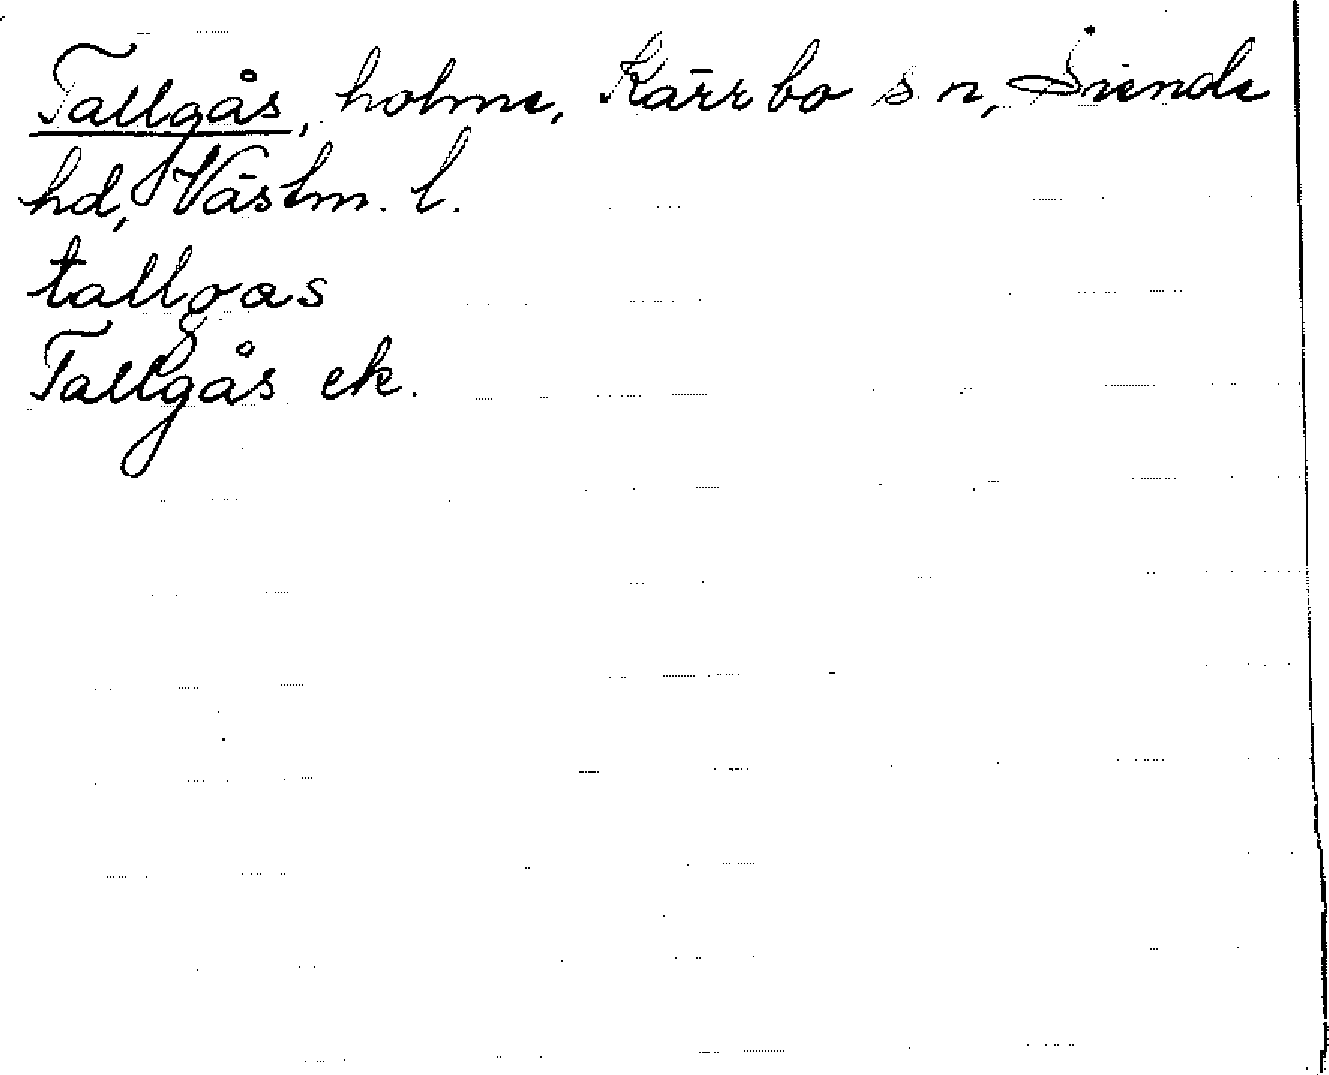 Tallgås, holme, Kärrbo sn, Siende
hd, Västm. l.
tallgås
Tallgås ek.